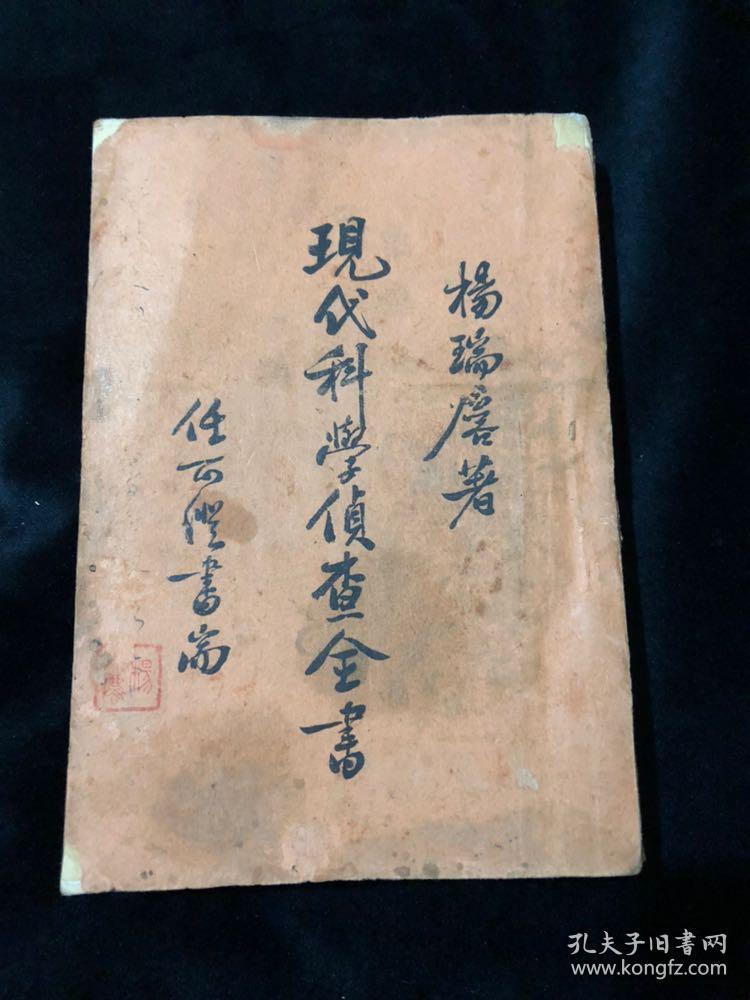 楊瑞麐著
現代科學偵查全書
任可澄書耑
楊
孔夫子旧書网
www.kongfz.com